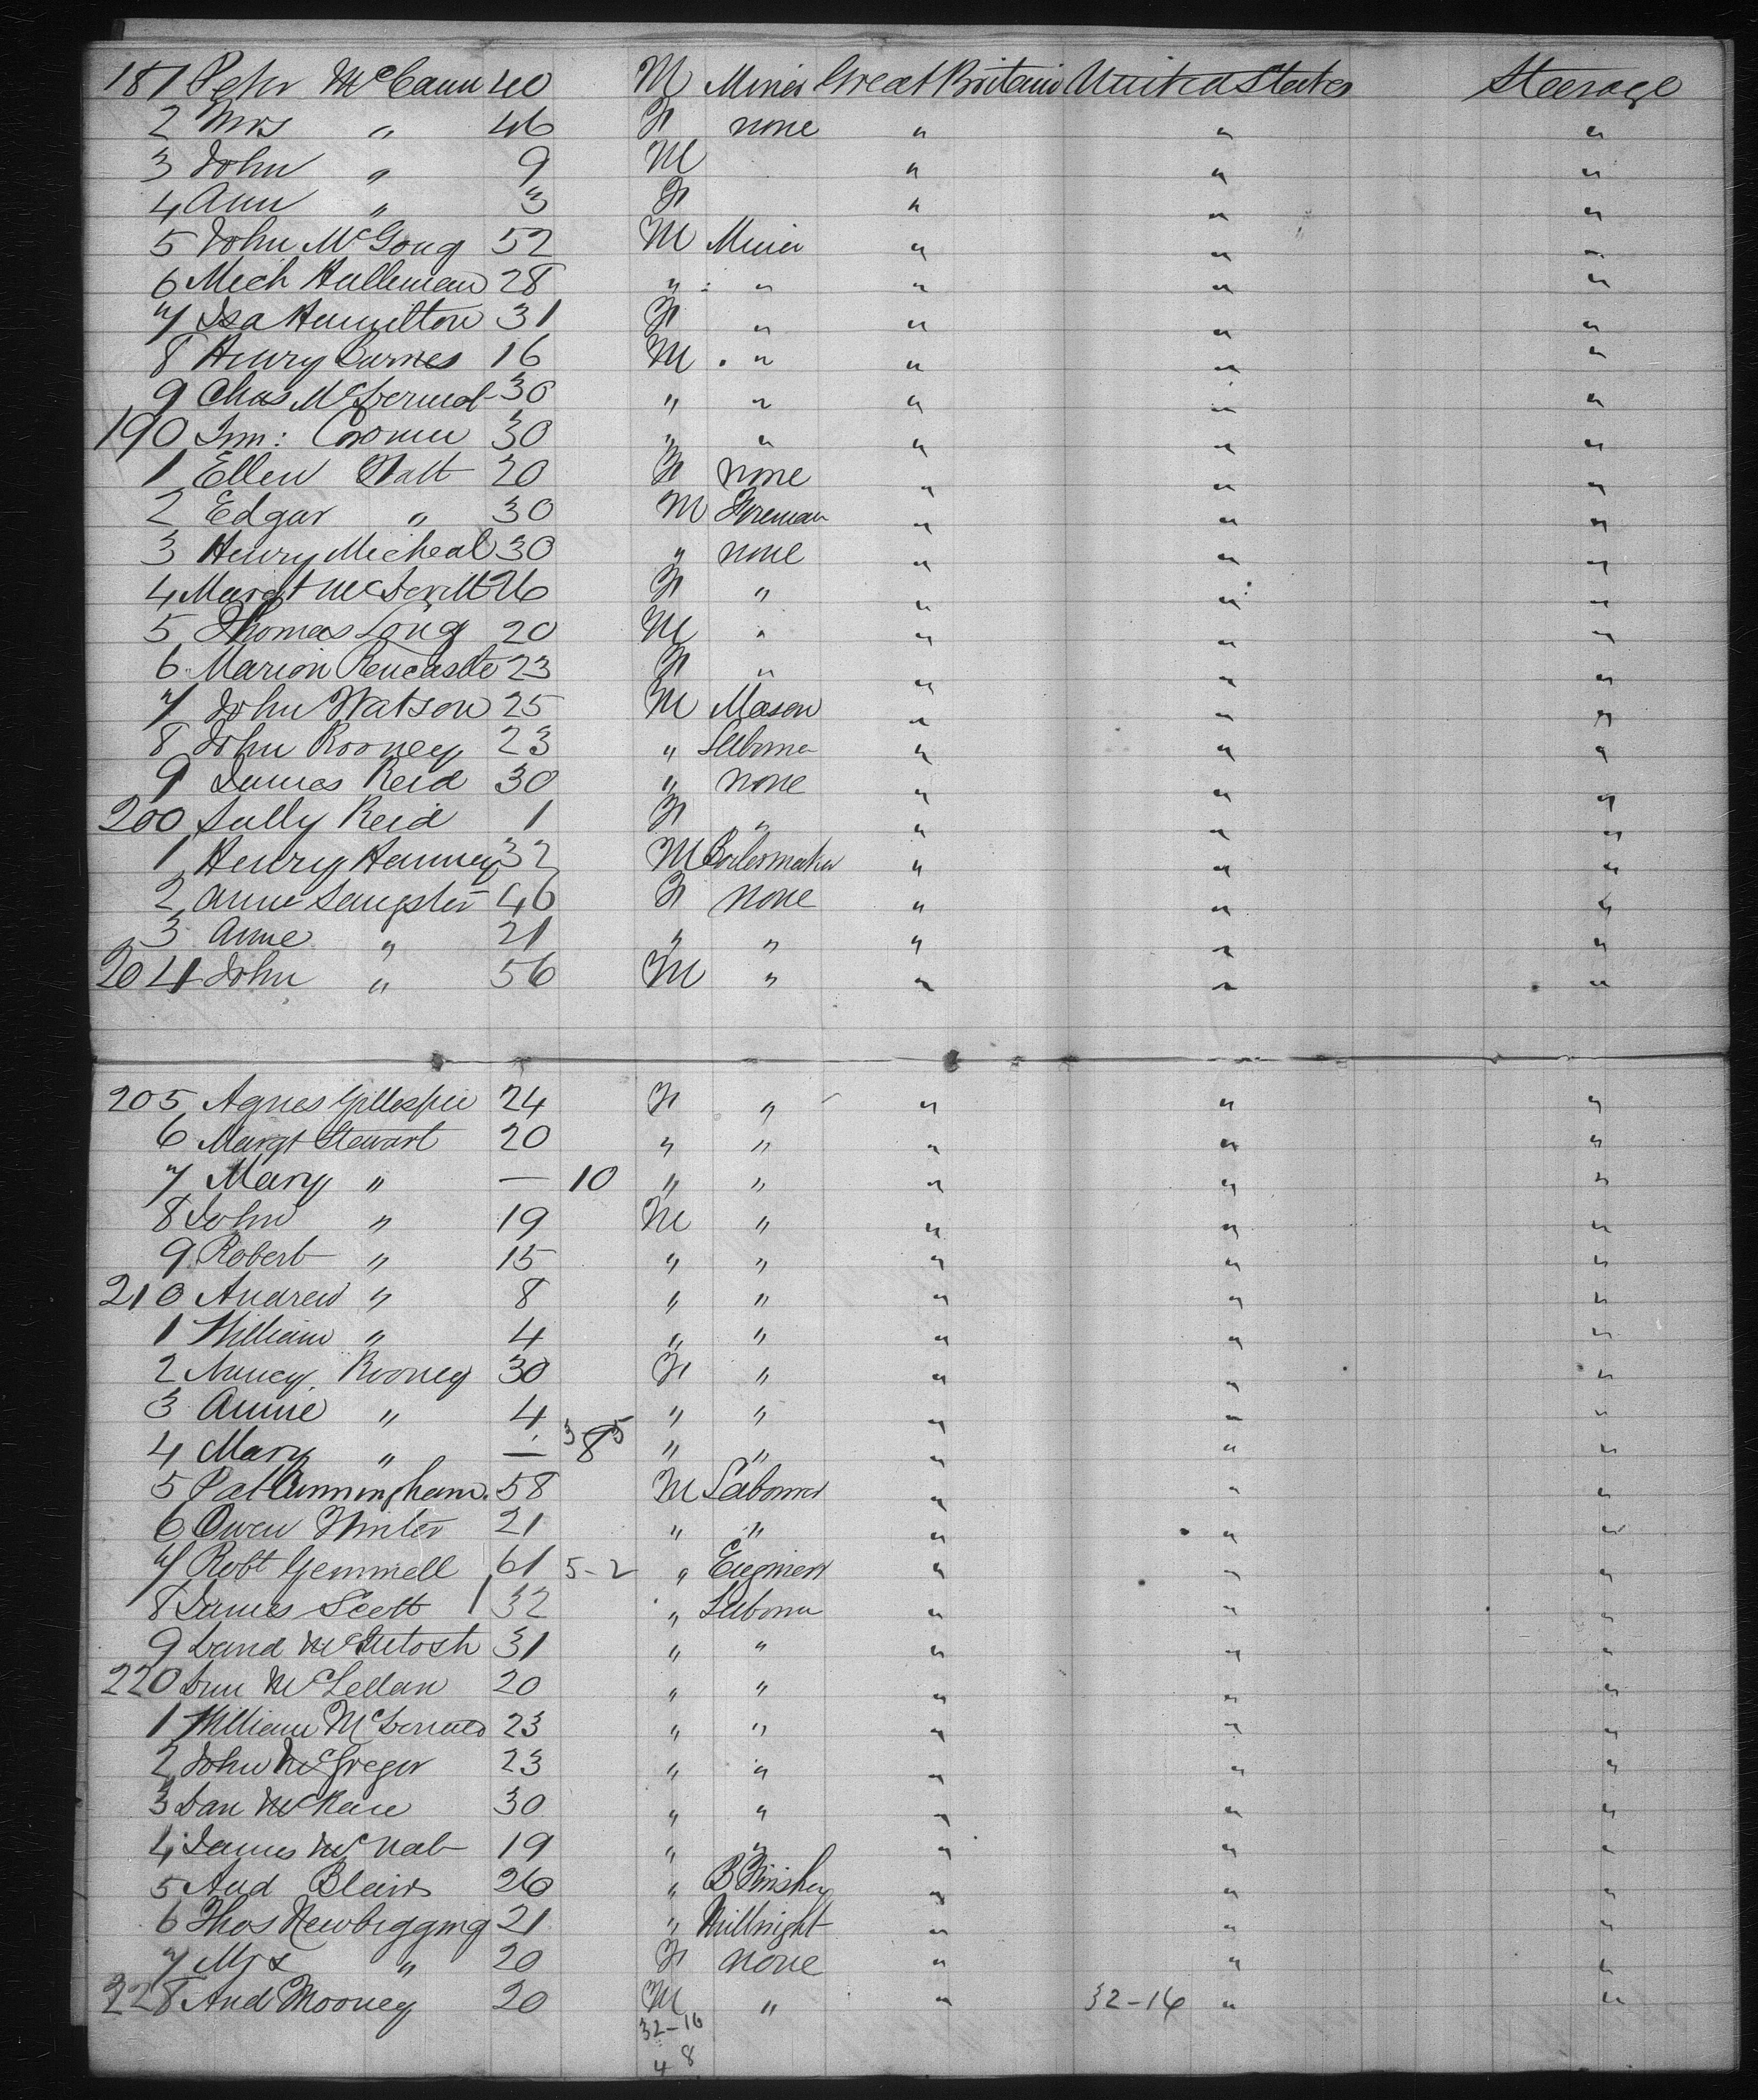 181 Peter McCann 40 M Miner Great Britain United States Steerage
2 Mrs " 46 F none " " "
3 John " 9 M " " "
4 Ann " 3 F " " "
5 John McGoug 52 M Miner " " "
6 Mich Halleman 28 " " " " "
7 Isa Hamilton 31 F " " " "
8 Henry Burnes 16 M " " " "
9 Chas McDermot 30 " " " " "
190 Jm: Cronin 30 " " " " "
1 Ellen Watt 20 F none " " "
2 Edgar " 30 M Fireman " " "
3 Henry Micheal 30 " none " " "
4 Margt McDevitt 26 F " " " "
5 Thomas Long 20 M " " " "
6 Marion Rencastle 23 F " " " "
7 John Watson 25 M Mason " " "
8 John Rooney 23 " Laborer " " "
9 James Reid 30 " none " " "
200 Sally Reid 1 F " " " "
1 Henry Hanney 32 M Boilermaker " " "
2 Anne Sangster 46 F none " " "
3 Anne " 21 " " " " "
204 John " 56 M " " " "
205 Agnes Gillespie 24 F " " " "
6 Margt Stewart 20 " " " " "
7 Mary " — 10 " " " " "
8 John " 19 M " " " "
9 Robert " 15 " " " " "
210 Andrew " 8 " " " " "
1 William " 4 " " " " "
2 Nancy Rooney 30 F " " " "
3 Annie " 4 " " " " "
4 Mary " — 8 " " " " "
5 Pat Cunningham. 58 M Laborer " " "
6 Owen Winter 21 " " " " "
7 Robt Gemmell 61 5-2 " Engineer " " "
8 James Scott 32 " Laborer " " "
9 David McIntosh 31 " " " " "
220 Dun McLellan 20 " " " " "
1 William McDonald 23 " " " " "
2 John McGregor 23 " " " " "
3 Dan McRae 30 " " " " "
4 James McNab 19 " " " " "
5 And Blair 26 " B Finisher " " "
6 Thos Newbigging 21 " Millright " " "
7 Mrs " 20 F none " " "
228 And Mooney 20 M " " 32-16 " "
32-16
4 8